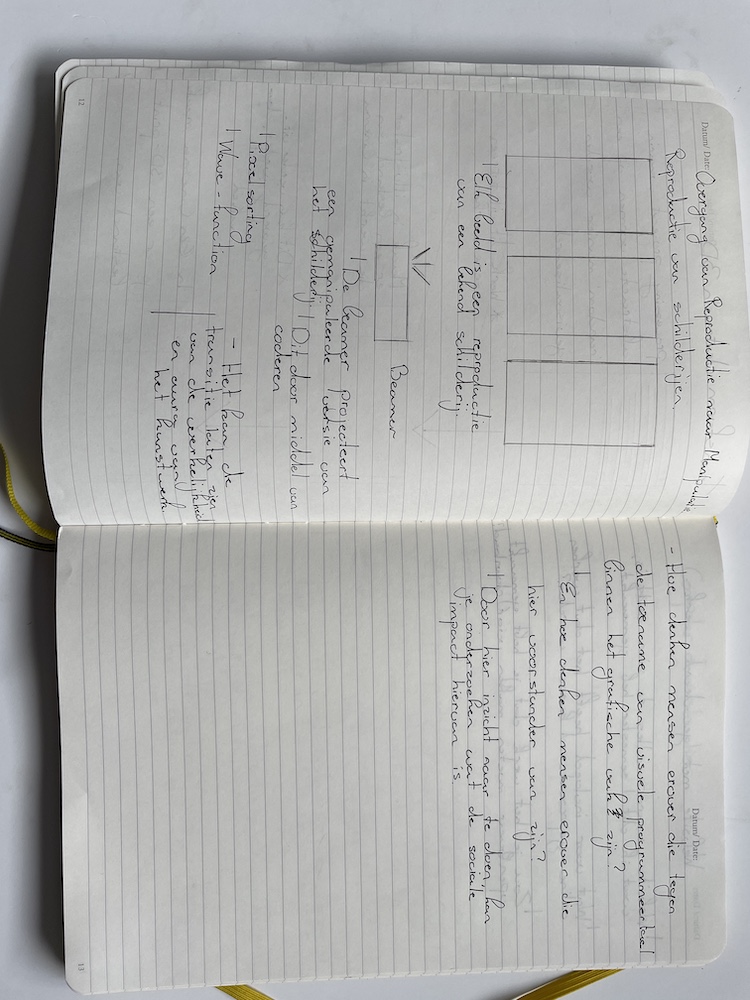 Datum/ Date:
Overgang van Reproductie naar Manipulatie
Reproductie van schilderijen.
Elk beeld is een reproductie
van een bekend schilderij.
Beamer
De beamer projecteert
een gemanipuleerde versie van
het schilderij.
Dit door middel van
coderen
Pixel sorting
Wave-function
- Het kan de
transitie laten zien
van de werkelijkheid
en aura van
het kunstwerk.
12
Datum/ Date:
- Hoe denken mensen erover die tegen
de toename van visuele programmeertaal
binnen het grafische vak zijn?
En hoe denken mensen erover die
hier voorstander van zijn?
Door hier inzicht naar te doen, kan
je onderzoeken wat de sociale
impact hiervan is.
13